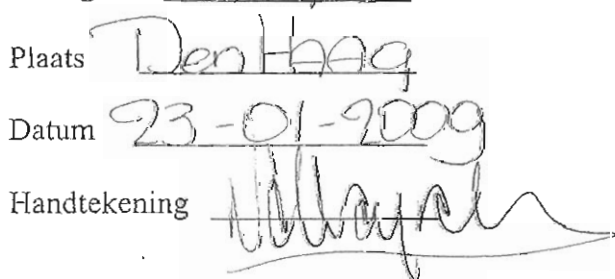 Plaats Den Haag
Datum 23-01-2009
Handtekening